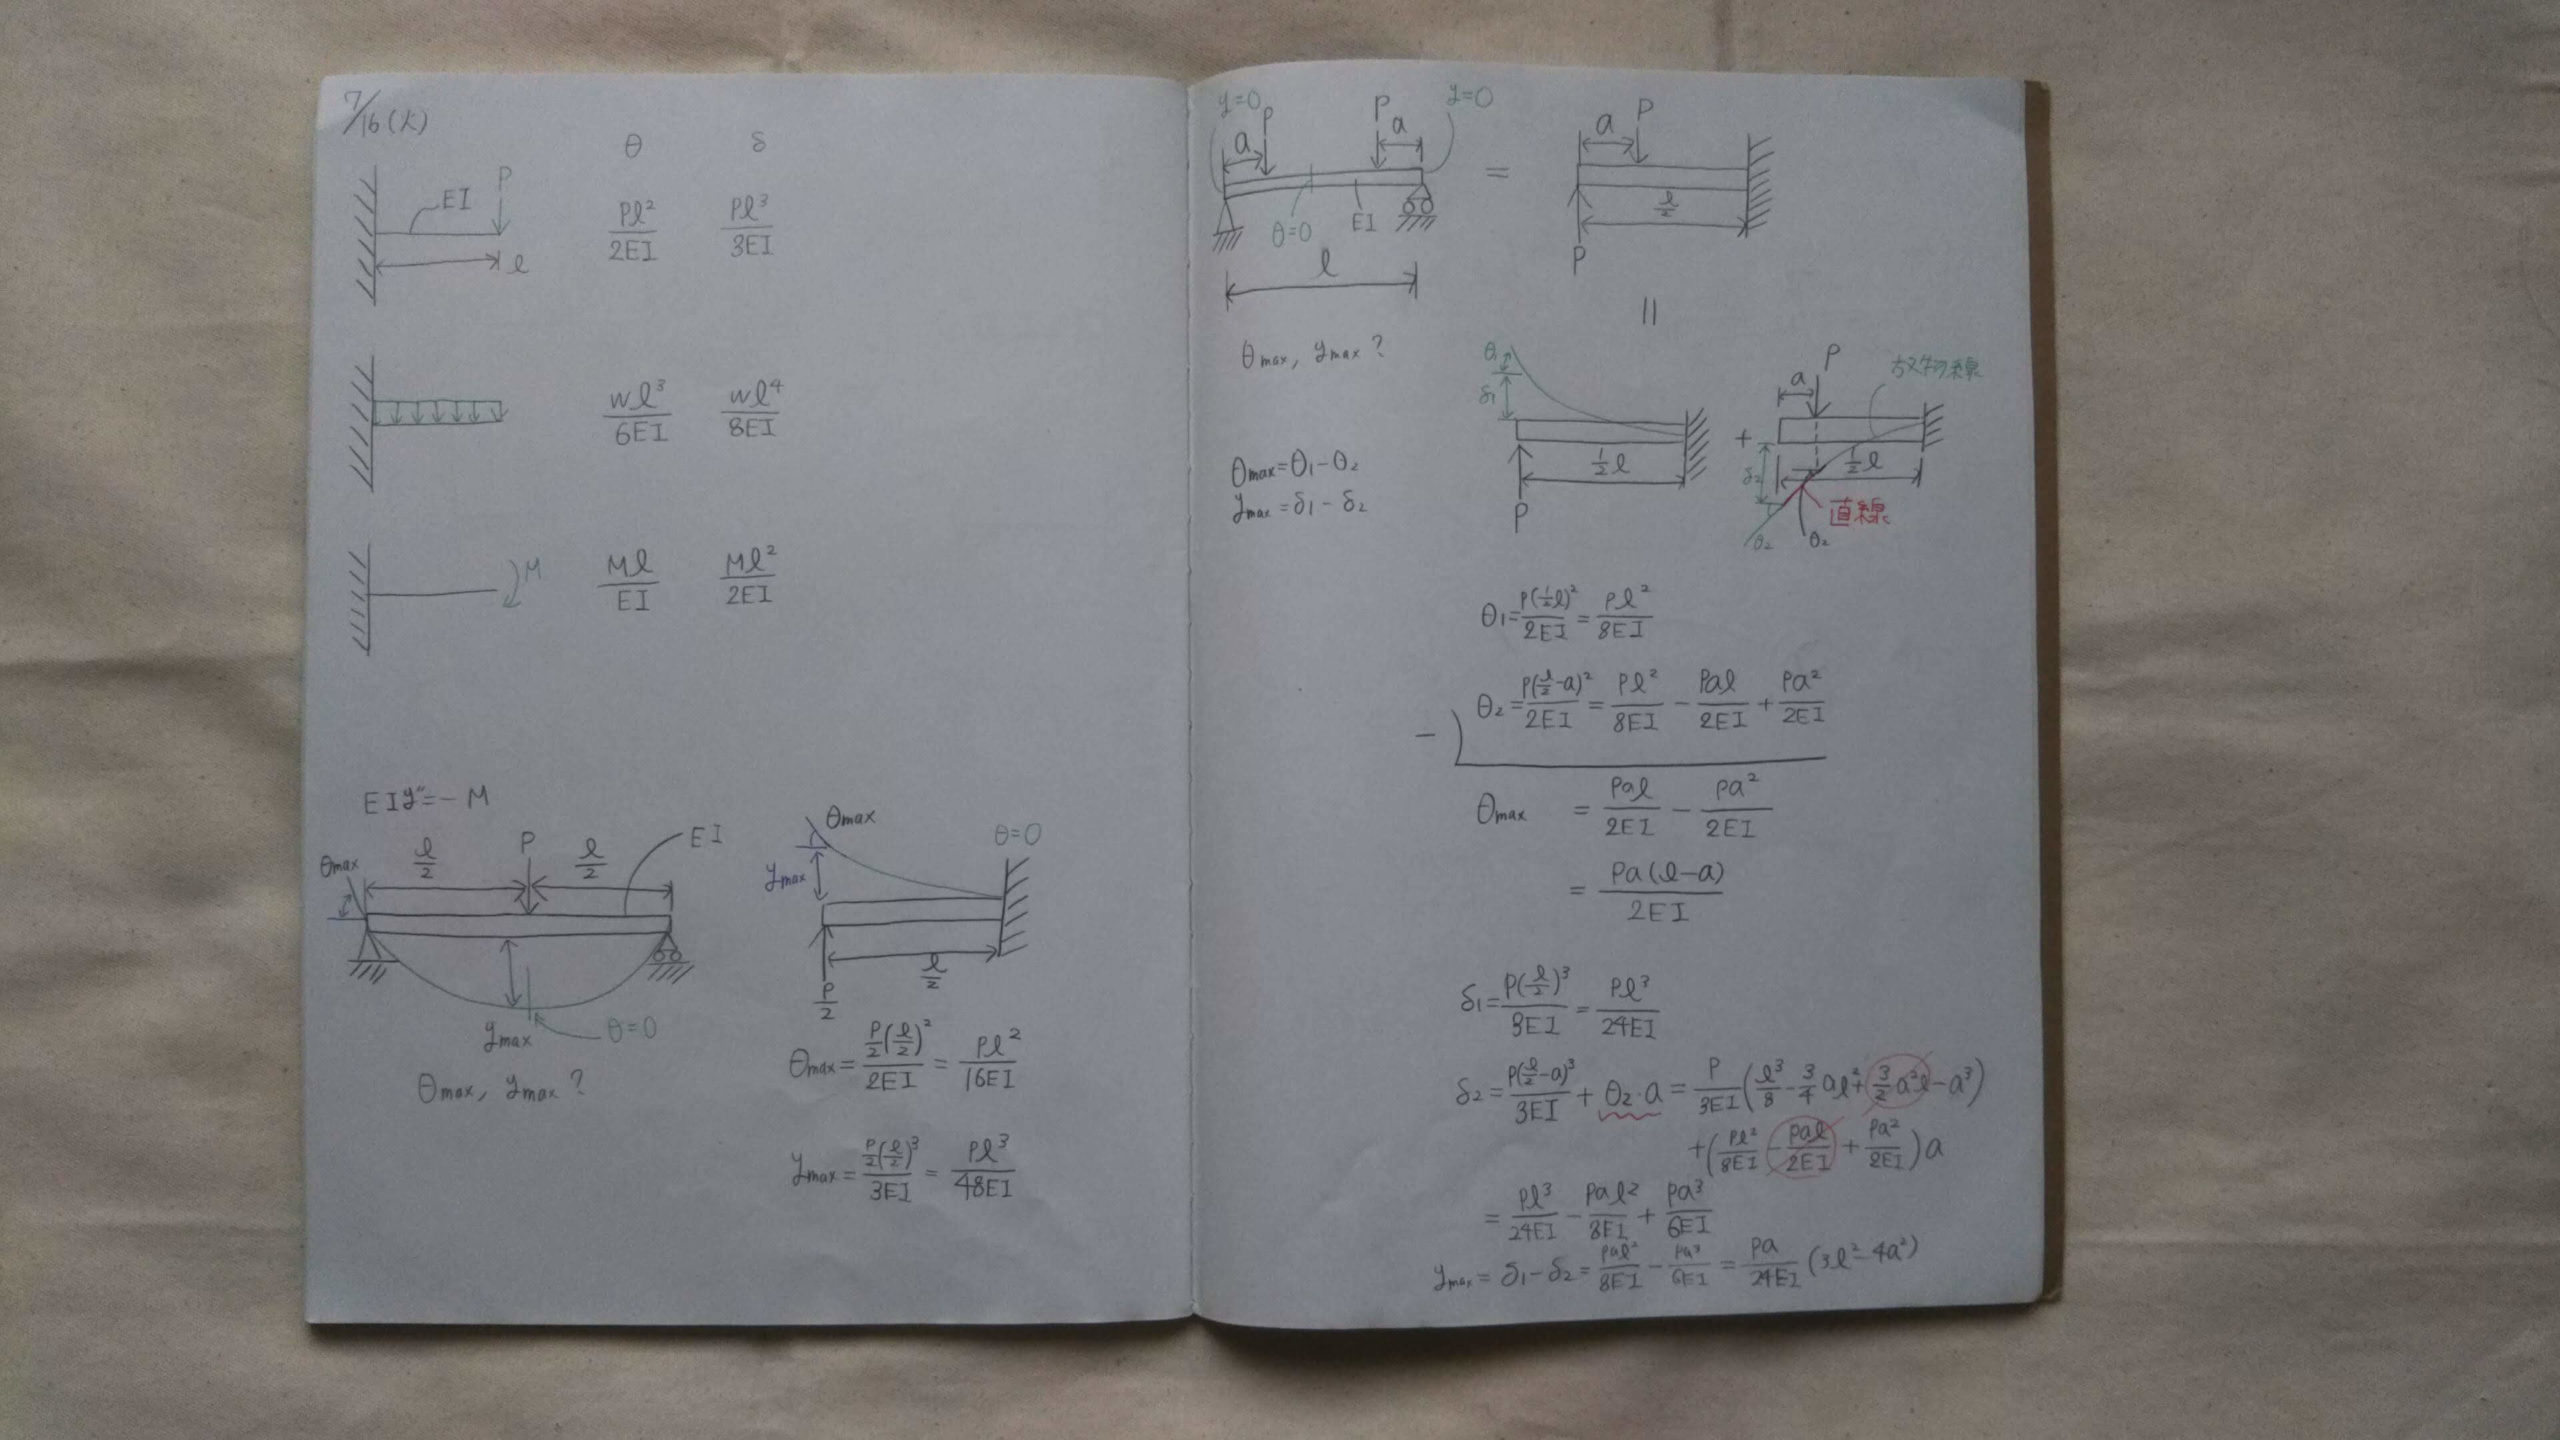 7/16(火)
θ δ
EI P l Pl²/2EI Pl³/3EI
wl³/6EI wl⁴/8EI
M Ml/EI Ml²/2EI
EIy″=-M
θmax l/2 P l/2 EI
ymax θ=0
θmax, ymax ?
θmax θ=0
ymax
l/2
P/2
θmax = P/2(l/2)²/2EI = Pl²/16EI
ymax = P/2(l/2)³/3EI = Pl³/48EI
y=0 P P y=0
a a
θ=0 EI
l
=
a P
l/2
P
=
θmax, ymax ?
θmax=θ₁-θ₂
ymax=δ₁-δ₂
θ₁
δ₁
1/2 l
P
+
P
a 放物線
δ₂ 1/2 l
直線
θ₂ θ₂
θ₁=P(1/2 l)²/2EI = Pl²/8EI
θ₂=P(l/2-a)²/2EI = Pl²/8EI - Pal/2EI + Pa²/2EI
-)
θmax = Pal/2EI - Pa²/2EI
= Pa(l-a)/2EI
δ₁=P(l/2)³/3EI = Pl³/24EI
δ₂=P(l/2-a)³/3EI + θ₂·a = P/3EI(l³/8 - 3/4 al² + 3/2 a²l - a³)
+(Pl²/8EI - Pal/2EI + Pa²/2EI)a
= Pl³/24EI - Pal²/8EI + Pa³/6EI
ymax = δ₁-δ₂ = Pal²/8EI - Pa³/6EI = Pa/24EI (3l²-4a²)